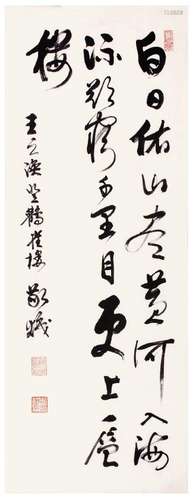 白日依山尽黄河入海
流欲穷千里目更上一层
楼
王之涣登鹳雀楼 敬